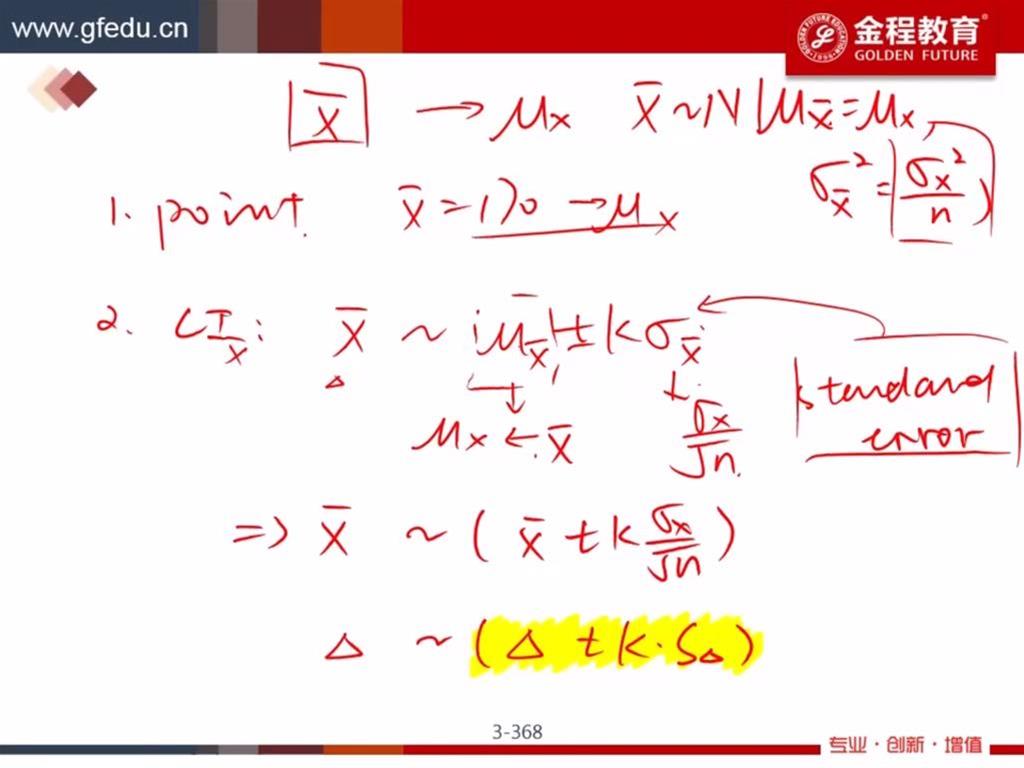 www.gfedu.cn
金程教育
GOLDEN FUTURE
X̄ → μx X̄ ~ N(μx̄ = μx,
σx̄² = σx²/n)
1. point. x̄ = 170 → μx
2. CIx: X̄ ~ (μx̄ ± kσx̄
standard
error
μx ← x̄ σx/√n
=> X̄ ~ (x̄ ± k σx/√n)
Δ ~ (Δ ± k·SΔ)
3-368
专业·创新·增值